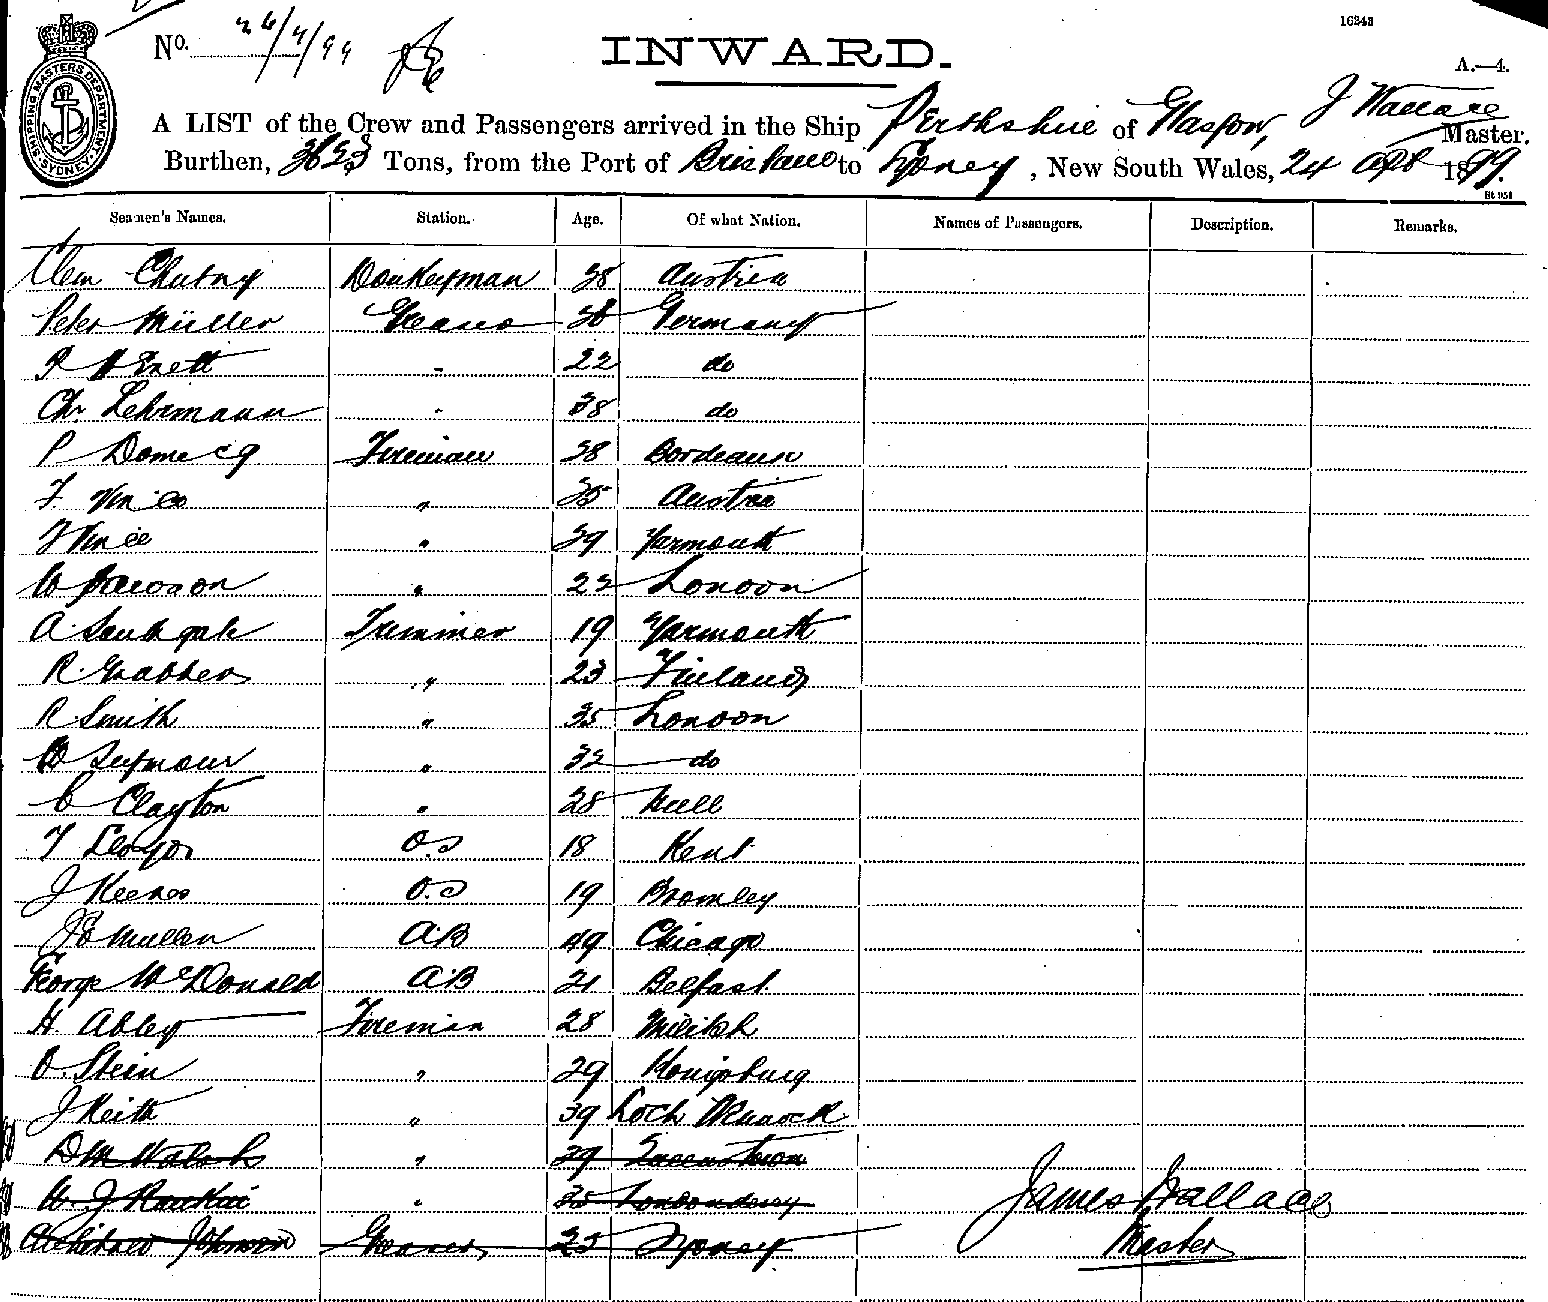 16243
No. 26/4/99
INWARD.
A.—4.
SHIPPING MASTERS DEPARTMENT. SYDNEY
A LIST of the Crew and Passengers arrived in the Ship Perthshire of Glasgow, J Wallace Master.
Burthen, Tons, from the Port of Brisbane to Sydney, New South Wales, 24 Apl 1899.
St 951
Seamen's Names. Station. Age. Of what Nation. Names of Passengers. Description. Remarks.
Clem Chutny Donkeyman 38 Austria
Peter Müller Greaser 38 Germany
22 do
Chr. Lehrmann " 38 do
P Domecq Fireman 38 Bordeaux
F. " 35 Austria
" 39 Yarmouth
W " 22 London
A. Southgate Trimmer 19 Yarmouth
R. Grabber " 23 Finland
R Smith " 35 London
Seymour " 32 do
C Clayton " 28 Hull
T Lloyd O.S 18 Kent
J Keenes O.S 19 Bromley
Mullen A.B 49 Chicago
George McDonald A.B 21 Belfast
H. Abley Fireman 28
O. Stein " 29 Konigsburg
J Keith " 39 Loch
D M Walsh " 39 Queenstown
W. J Rankin " 35 Londonderry
Archibald Johnson Greaser 25 Sydney
James Wallace
Master